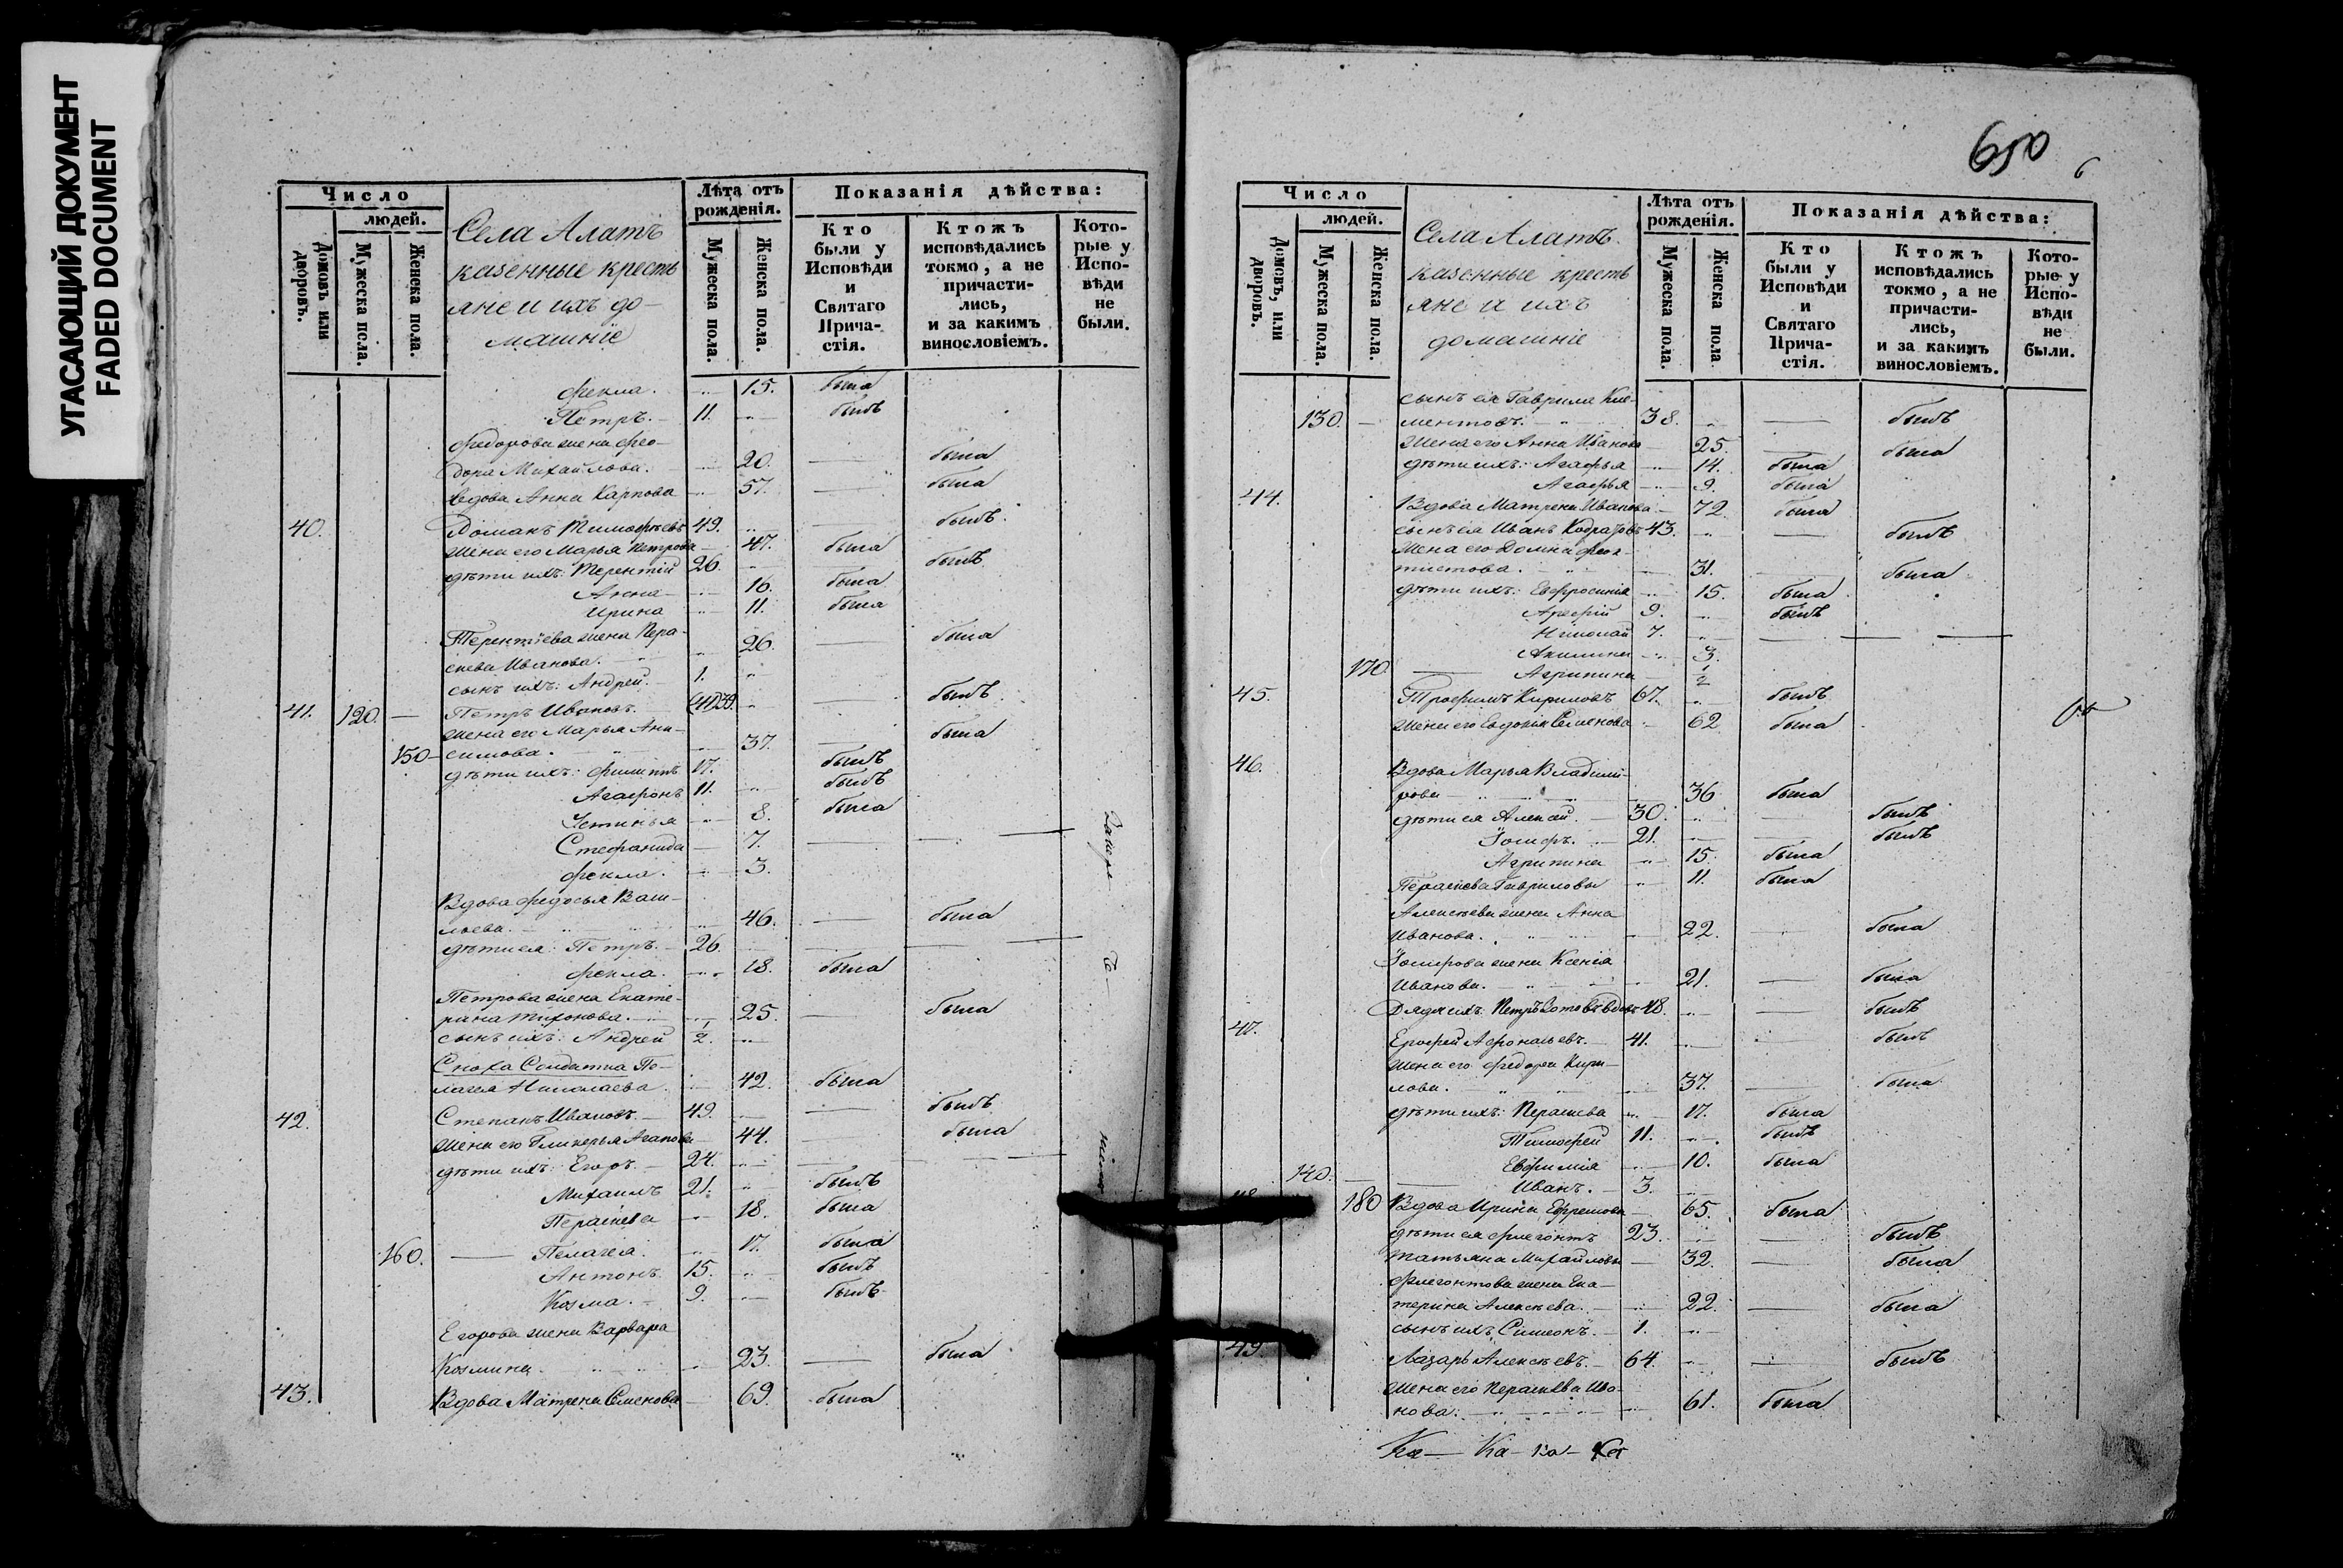 УГАСАЮЩИЙ ДОКУМЕНТ
FADED DOCUMENT
Число
людей.
Домовъ или дворовъ.
Мужеска пола.
Женска пола.
Села Алатъ
казенные кресть
яне и ихъ до-
машніе
Лѣта отъ рожденія.
Мужеска пола.
Женска пола.
Показанія дѣйства:
Кто были у Исповѣди и Святаго Прича-стія.
Ктожъ исповѣдались токмо, а не причасти-лись, и за какимъ винословіемъ.
Кото-рые у Испо-вѣди не были.
Фекла. 15. была
Петръ. 11. былъ
Федорова жена Фео-
дора Михайлова. 20. была
вдова Анна Карпова 57. была
40. Романъ Тимофѣевъ 49. былъ
жена его Марья Петрова 47. была
дѣти ихъ: Терентій 26. былъ
Анна 16. была
Ирина 11. была
Терентіева жена Пара-
скева Иванова. 26. была
сынъ ихъ: Андрей. 1.
41. 120. Петръ Ивановъ. былъ
жена его Марья Ани-
150 симова. 37. была
дѣти ихъ: Филиппъ 17. былъ
Агафонъ 11. былъ
Устинья 8. была
Стефанида 7.
Фекла. 3.
Вдова Федосья Васи-
льева. 46. была
дѣти ея: Петръ. 26.
Фекла. 18. была
Петрова жена Екате-
рина Тихонова. 25. была
сынъ ихъ: Андрей 1/2.
Сноха Солдатка Пе-
лагея Николаева. 42. была
42. Степанъ Ивановъ. 49. былъ
жена его Гликерья Агапова 44. была
дѣти ихъ: Егоръ. 24.
Михаилъ 21. былъ
Параскева 18. была
160. Пелагея. 17. была
Антонъ 15. былъ
Козма. 9. былъ
Егорова жена Варвара
Козмина. 23. была
43. Вдова Матрена Семенова 69. была
650
6
Число
людей.
Домовъ, или дворовъ.
Мужеска пола.
Женска пола.
Села Алатъ.
казенные кресть
яне и ихъ
домашніе
Лѣта отъ рожденія.
Мужеска пола.
Женска пола
Показанія дѣйства:
Кто были у Исповѣди и Святаго Прича-стія.
Ктожъ исповѣдались токмо, а не причасти-лись, и за какимъ винословіемъ.
Кото-рые у Испо-вѣди не были.
сынъ ея Гаврила Кле-
130. ментовъ. 38. былъ
жена его Анна Иванова 25. была
дѣти ихъ: Агафья 14. была
Агафья 9. была
44. Вдова Матрена Иванова 72. была
сынъ ея Иванъ Кодратовъ 43. былъ
жена его Домна Феок-
тистова. 31. была
дѣти ихъ: Евфросинія 15. была
Арефій 9. былъ
Николай 7.
Акилина 3.
170. Агрипина 1/2
45. Трофимъ Кириловъ 67. былъ
жена его Евдокія Семенова 62 была
46. Вдова Марья Владими-
рова 36 была
дѣти ея Алексѣй. 30. былъ
Іосифъ. 21. былъ
Агрипина 15. была
Параскева Гаврилова 11. была
Алексѣева жена Анна
Иванова. 22. была
Іосифова жена Ксенія
Иванова. 21. была
Дядя ихъ: Петръ Зотовъ вдовъ 48. былъ
47. Ерофей Афонасьевъ. 41. былъ
жена его Федора Кири-
лова. 37. была
дѣти ихъ: Параскева 17. была
Тимофей 11. былъ
Евфимія 10. была
140. Иванъ. 3.
180 Вдова Ирина Ефремова 65. была
дѣти ея Флегонтъ 23. былъ
Татьяна Михайлова 32. была
Флегонтова жена Ека-
терина Алексѣева. 22. была
сынъ ихъ Симеонъ. 1.
49. Лазарь Алексѣевъ. 64. былъ
жена его Параскева Ива-
нова. 61. была
Ка— Ка— ка— Ка